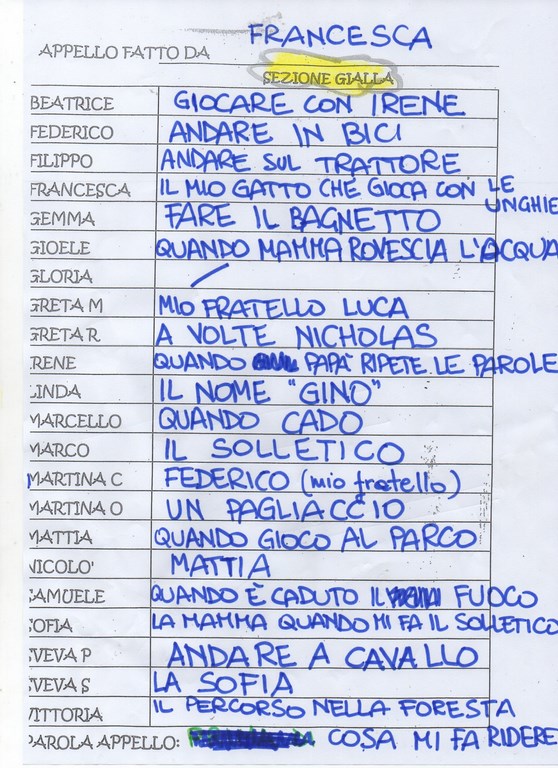 APPELLO FATTO DA FRANCESCA
SEZIONE GIALLA
BEATRICE GIOCARE CON IRENE
FEDERICO ANDARE IN BICI
FILIPPO ANDARE SUL TRATTORE
FRANCESCA IL MIO GATTO CHE GIOCA CON LE UNGHIE
GEMMA FARE IL BAGNETTO
GIOELE QUANDO MAMMA ROVESCIA L'ACQUA
GLORIA /
GRETA M MIO FRATELLO LUCA
GRETA R A VOLTE NICHOLAS
IRENE QUANDO PAPA' RIPETE LE PAROLE
LINDA IL NOME "GINO"
MARCELLO QUANDO CADO
MARCO IL SOLLETICO
MARTINA C FEDERICO (mio fratello)
MARTINA O UN PAGLIACCIO
MATTIA QUANDO GIOCO AL PARCO
NICOLO' MATTIA
SAMUELE QUANDO È CADUTO IL FUOCO
SOFIA LA MAMMA QUANDO MI FA IL SOLLETICO
SVEVA P ANDARE A CAVALLO
SVEVA S LA SOFIA
VITTORIA IL PERCORSO NELLA FORESTA
PAROLA APPELLO: COSA MI FA RIDERE